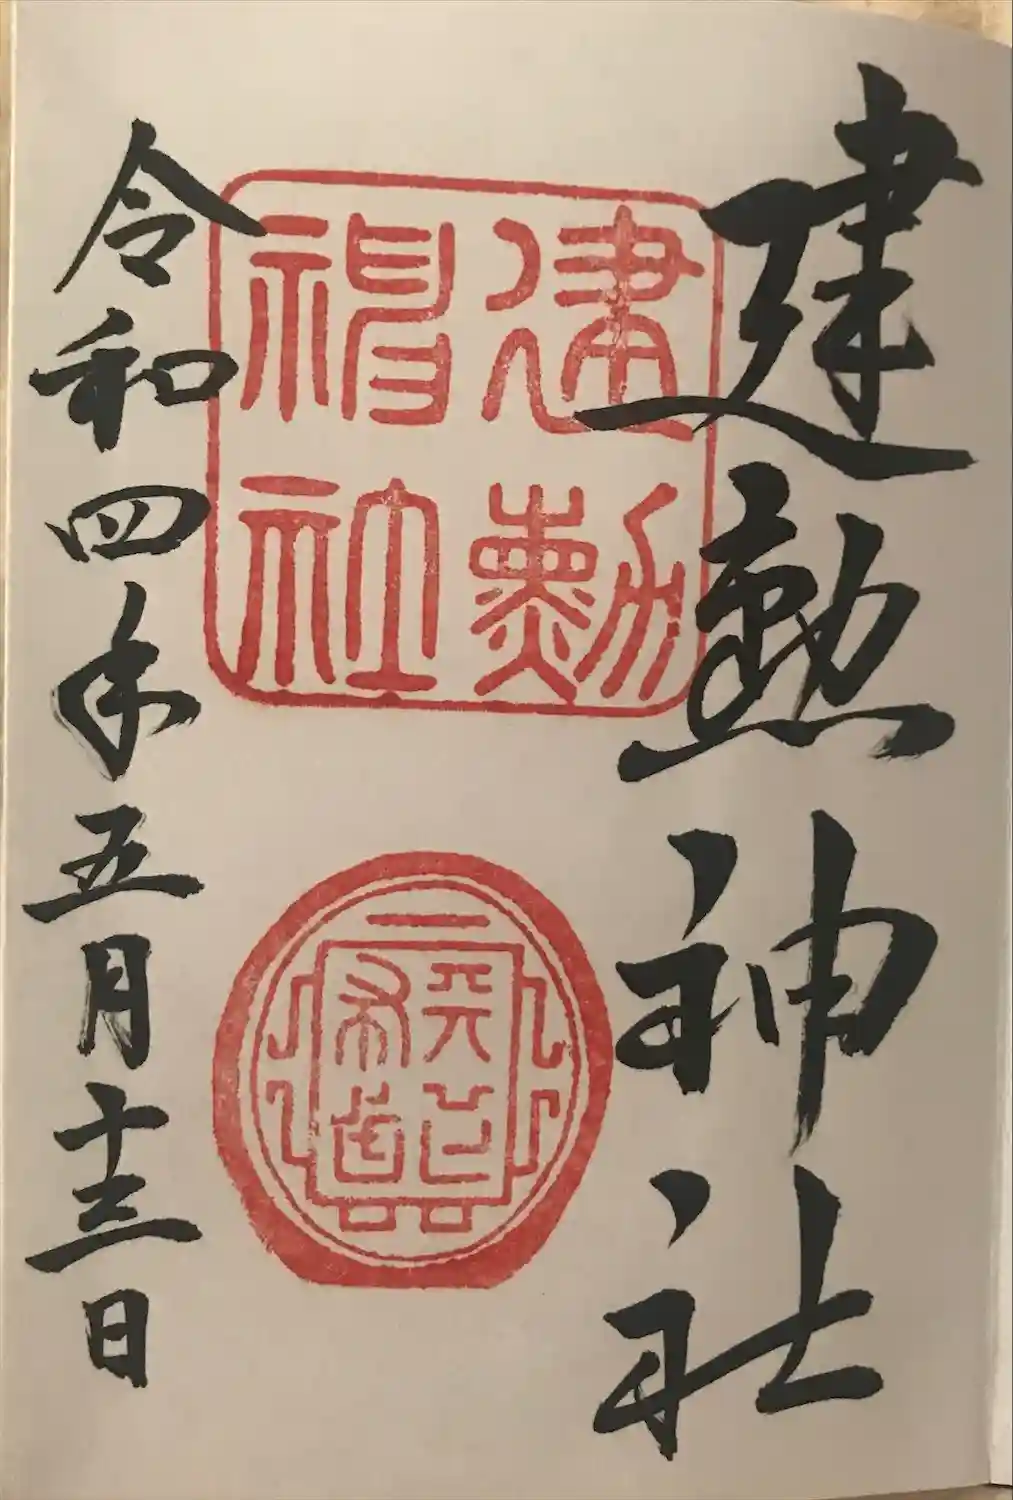 建勲神社
建勲
神社
令和四年五月十三日